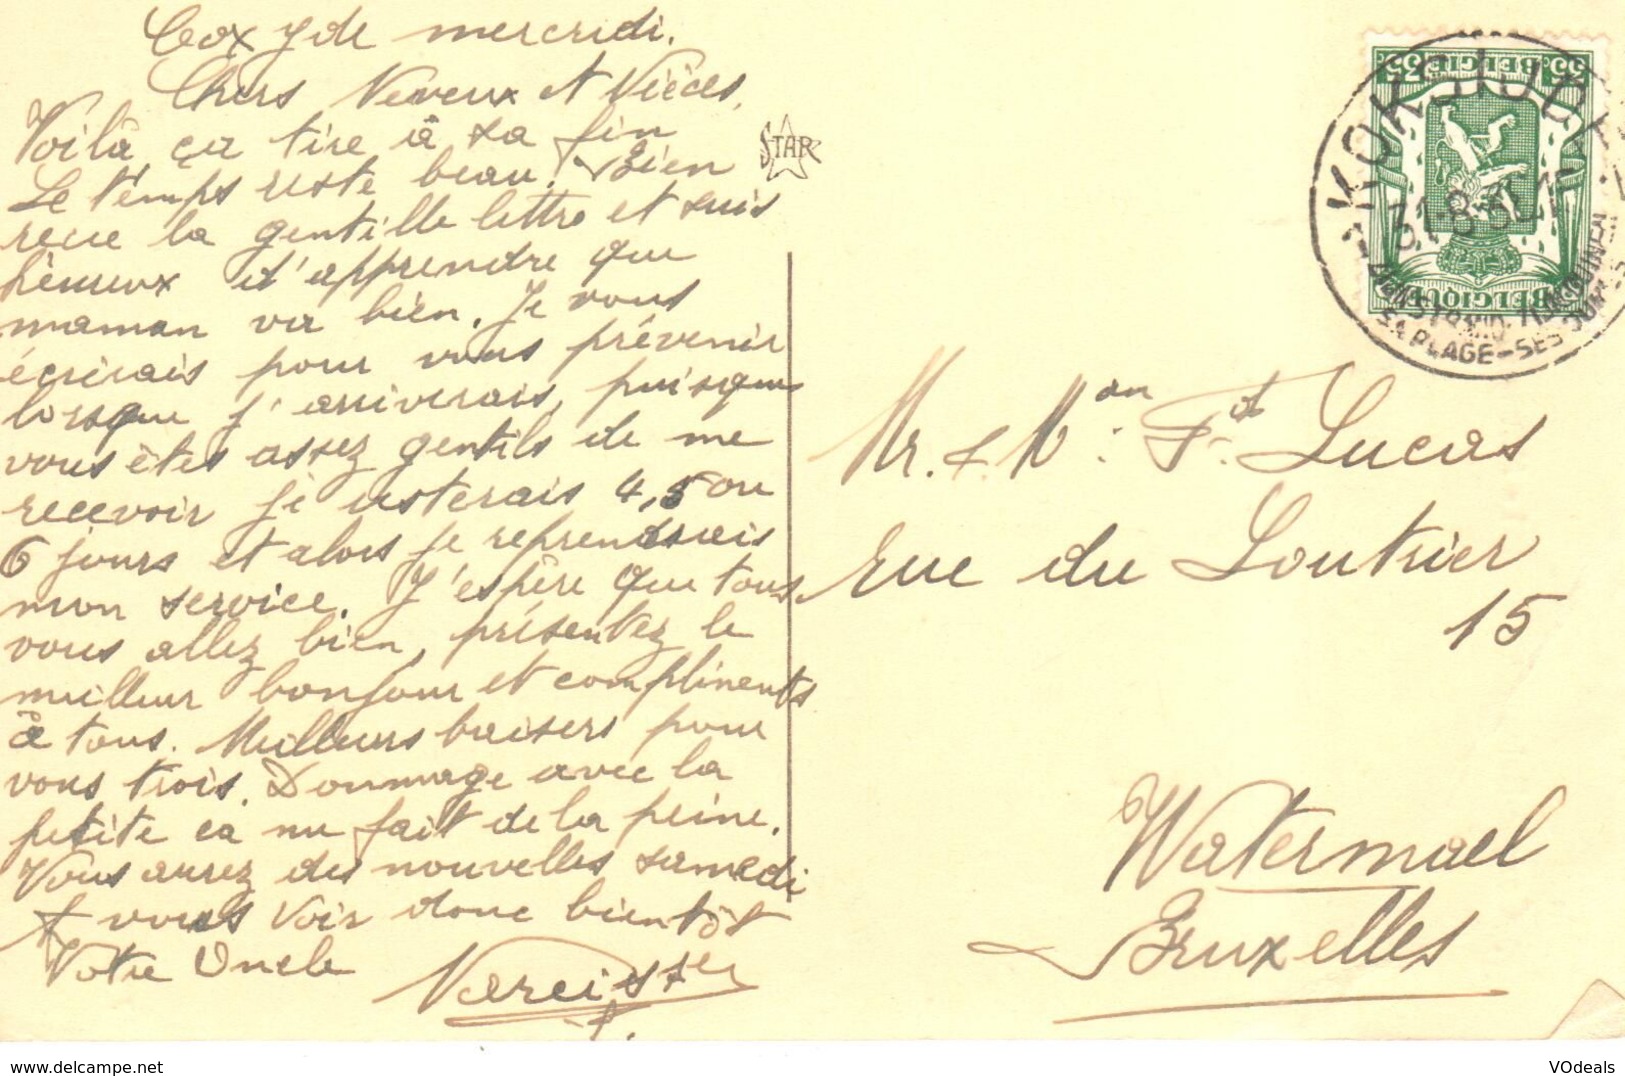 Coxyde mercredi.
Chers Neveux et Nièces,
Voilà, ça tire à sa fin
Le temps reste beau. Bien
reçue la gentille lettre et suis
hèureux d'apprendre que
maman va bien. Je vous
écrirais pour vous prévenir
lorsque j'arriverais, puisque
vous êtes assez gentils de me
recevoir je resterais 4,5 ou
6 jours et alors je reprendrais
mon service. J'espère que tous
vous allez bien, présentez le
meilleur bonjour et compliments
à tous. Meilleurs baisers pour
vous trois. Dommage avec la
petite ca me fait de la peine.
Vous aurez des nouvelles samedi
A vous voir donc bientôt
Votre Oncle
STAR
35c BELGIE 35c
BELGIQUE
KOKSIJDE
31-8-3
PLAGE-SES DUNES
Mr. & Mme. Fd. Lucas
rue du Loutrier
15
Watermael
Bruxelles
VOdeals